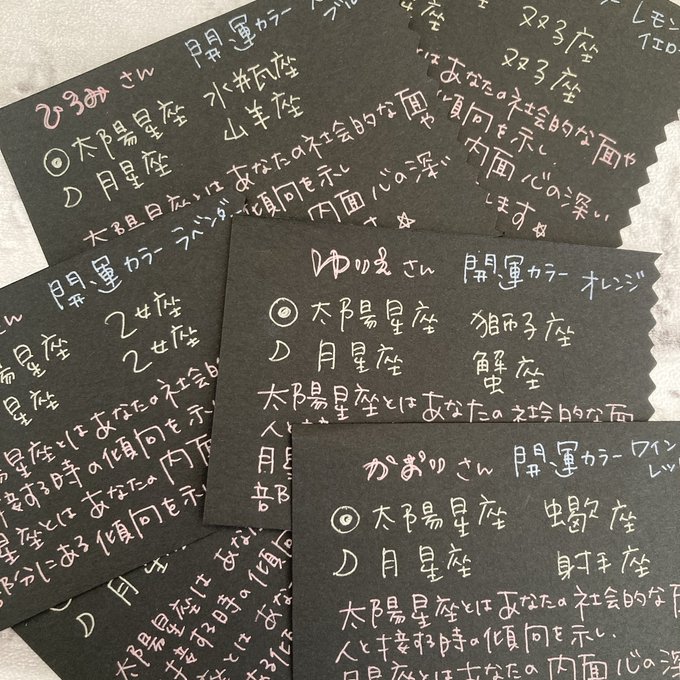 ひろみさん 開運カラー
太陽星座 水井瓦座
月星座 山羊座
太陽星座とはあなたの社会的な面や
傾向を示し
内面 心の深い
双子座
双子座
レモン
イエロー
はあなたの社会的な面や
傾向を示し
内面 心の深い
します☆
さん 開運カラー ラベンダー
陽星座 乙女座
星座 乙女座
陽星座とはあなたの社会的
接する時の傾向を示し
星座とはあなたの内面
部分にある傾向を示し
ゆりえさん 開運カラー オレンジ
太陽星座 獅子座
月星座 蟹座
太陽星座とはあなたの社会的な面
人と接
月星
部
かおりさん 開運カラー ワイン
レッ
太陽星座 蝎座
月星座 射手座
太陽星座とはあなたの社会的な面
人と接する時の傾向を示し
月星座とはあなたの内面 心の深
月星座
太陽星座はあな
接する時の傾
とはあ
ある傾